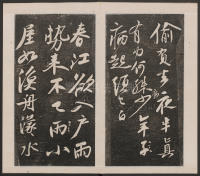 偷負去夜半真
有力何殊少年子
病起須已白
春江欲入户雨
勢來不已雨小
屋如漁舟濛水